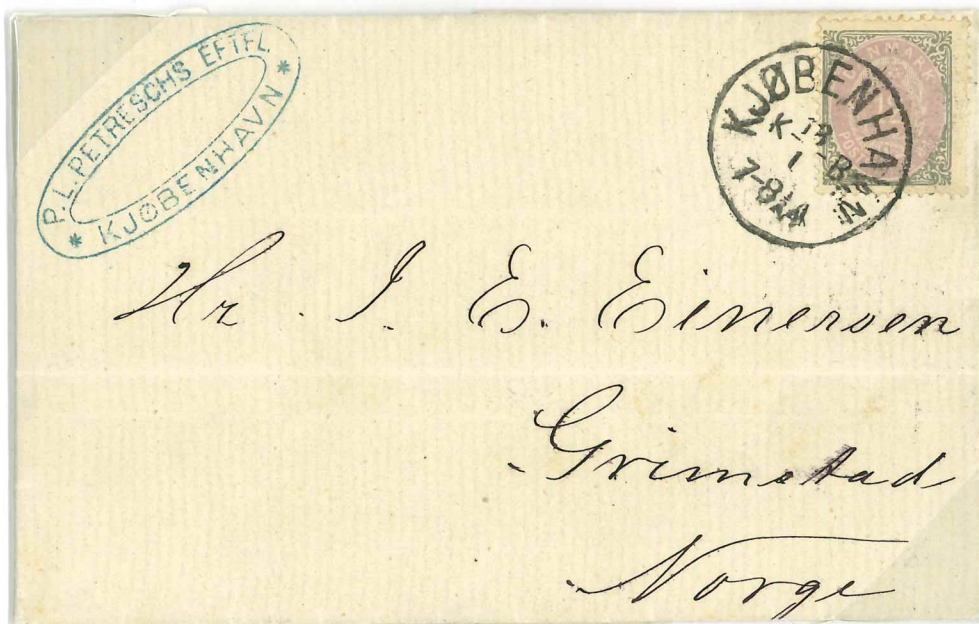 P. L. PETRESCHS EFTFL.
* KJØBENHAVN *
KJØBENHAVN
K. - B.
1
7-8
DANMARK
Hr. I. E. Einersen
Grimstad
Norge